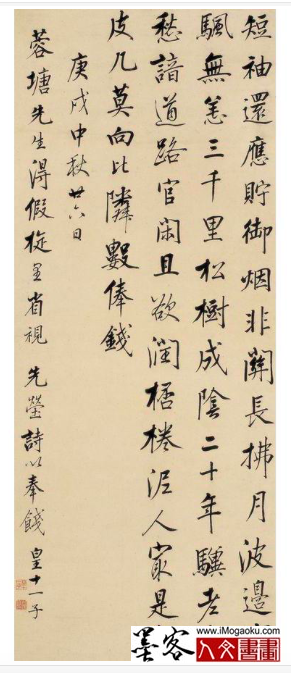 短袖還應貯御烟非關長拂月波邊
颿無恙三千里松樹成陰二十年驥老
愁諳道路官閑且欲潤桮棬泥人最是
皮几莫向比隣數俸錢
庚戌中秋廿六日
蓉塘先生得假旋里省視 先塋詩以奉餞 皇十一子
墨客
www.iMogaoku.com
人文書畫